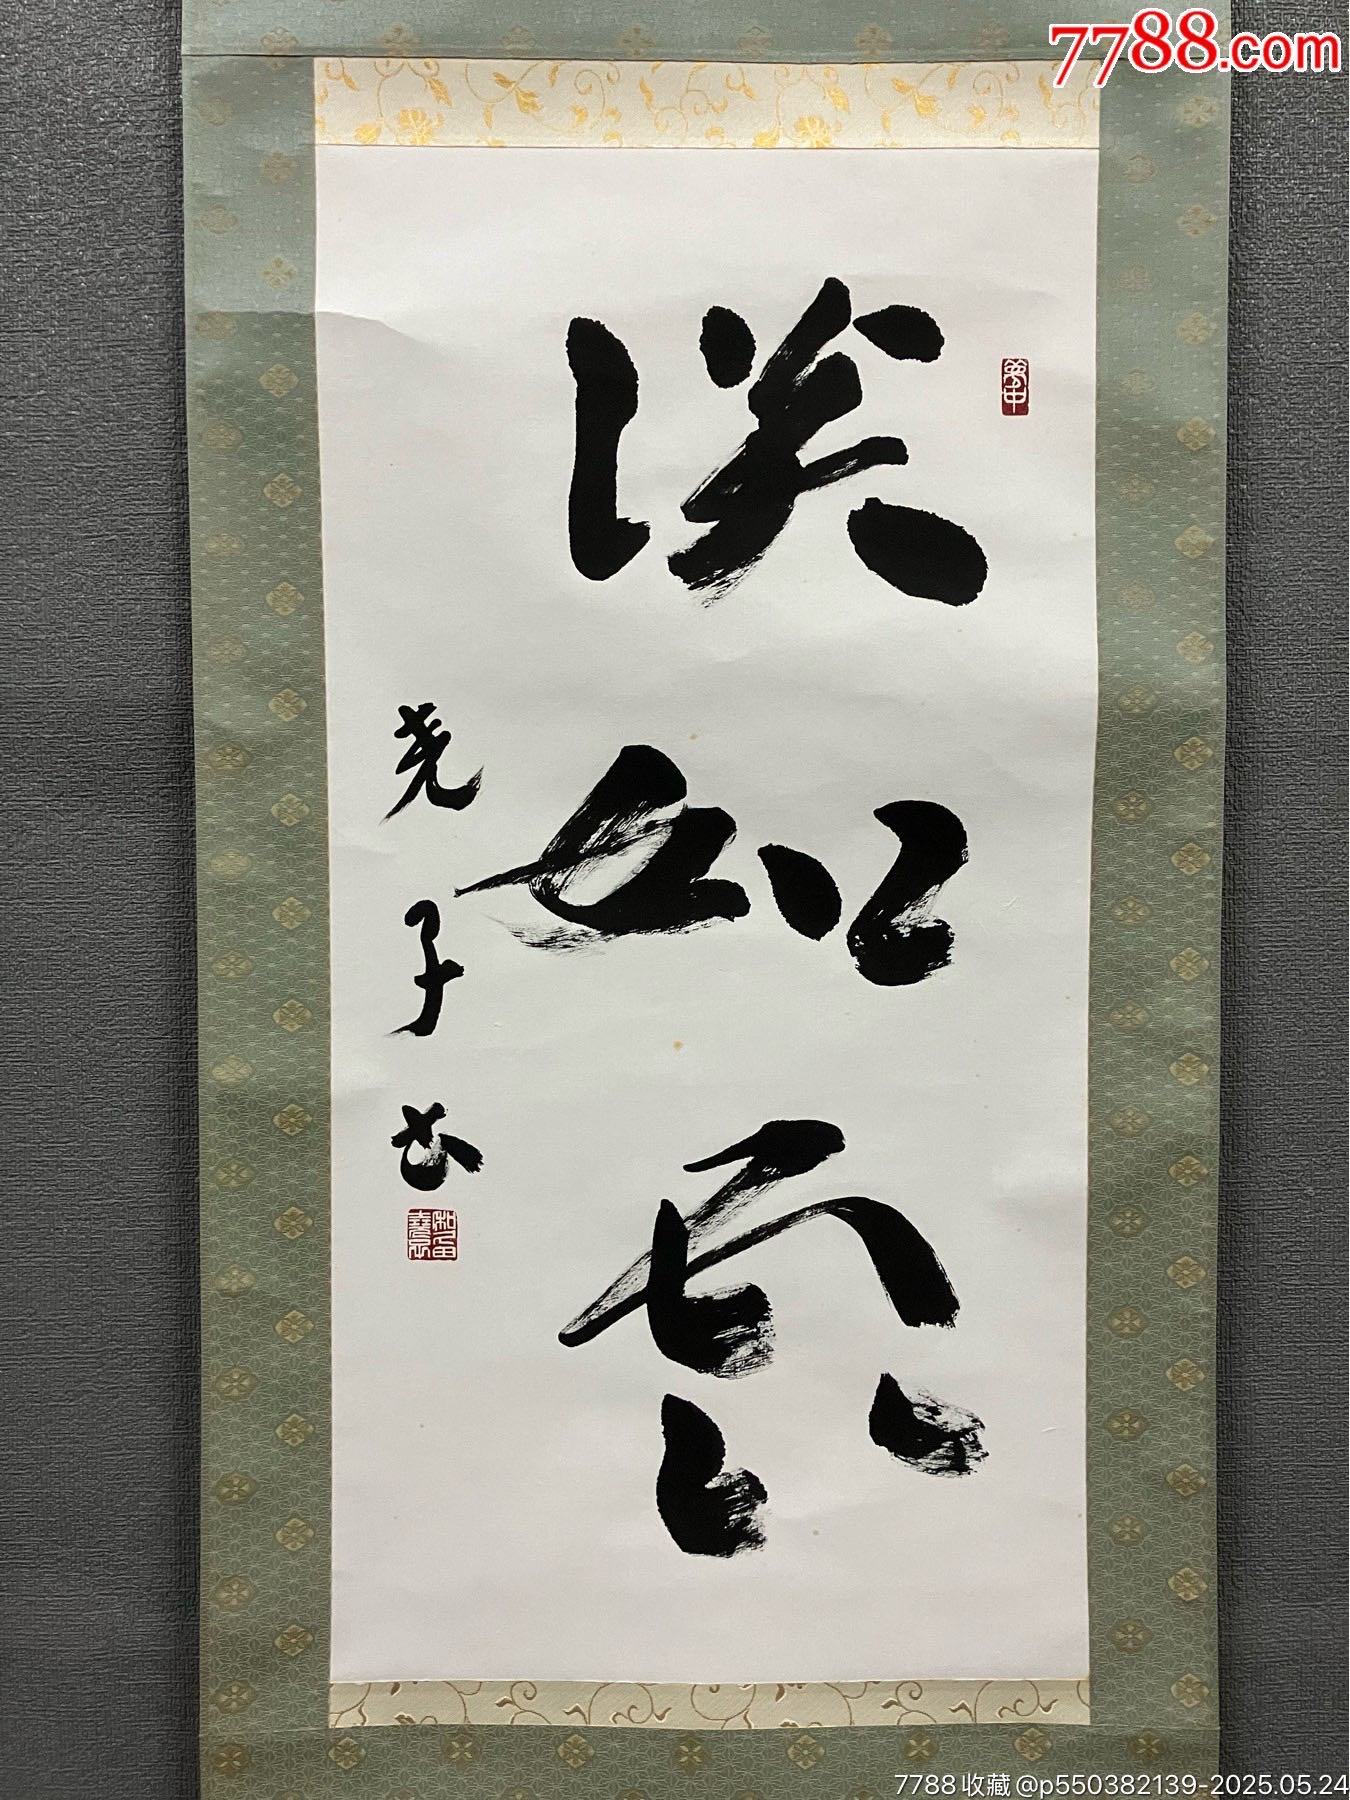 7788.com
淡如雲
夢中
尭子书
7788收藏@p550382139-2025.05.24